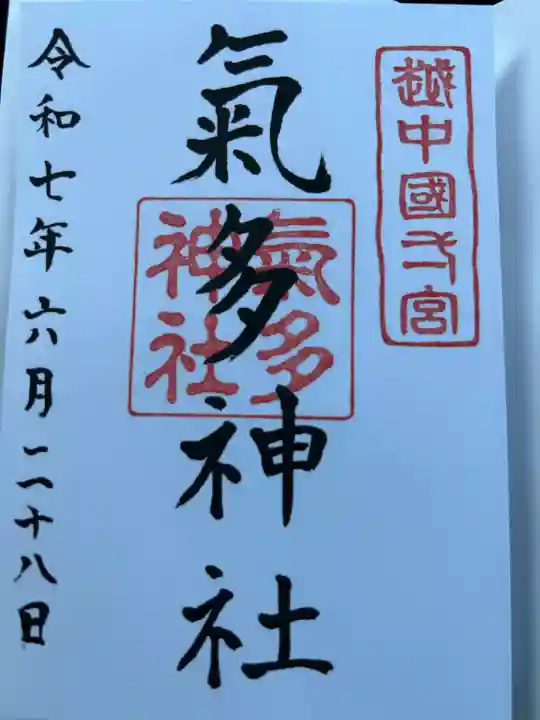 越中國一宮
氣多神社
氣多
神社
令和七年六月二十八日